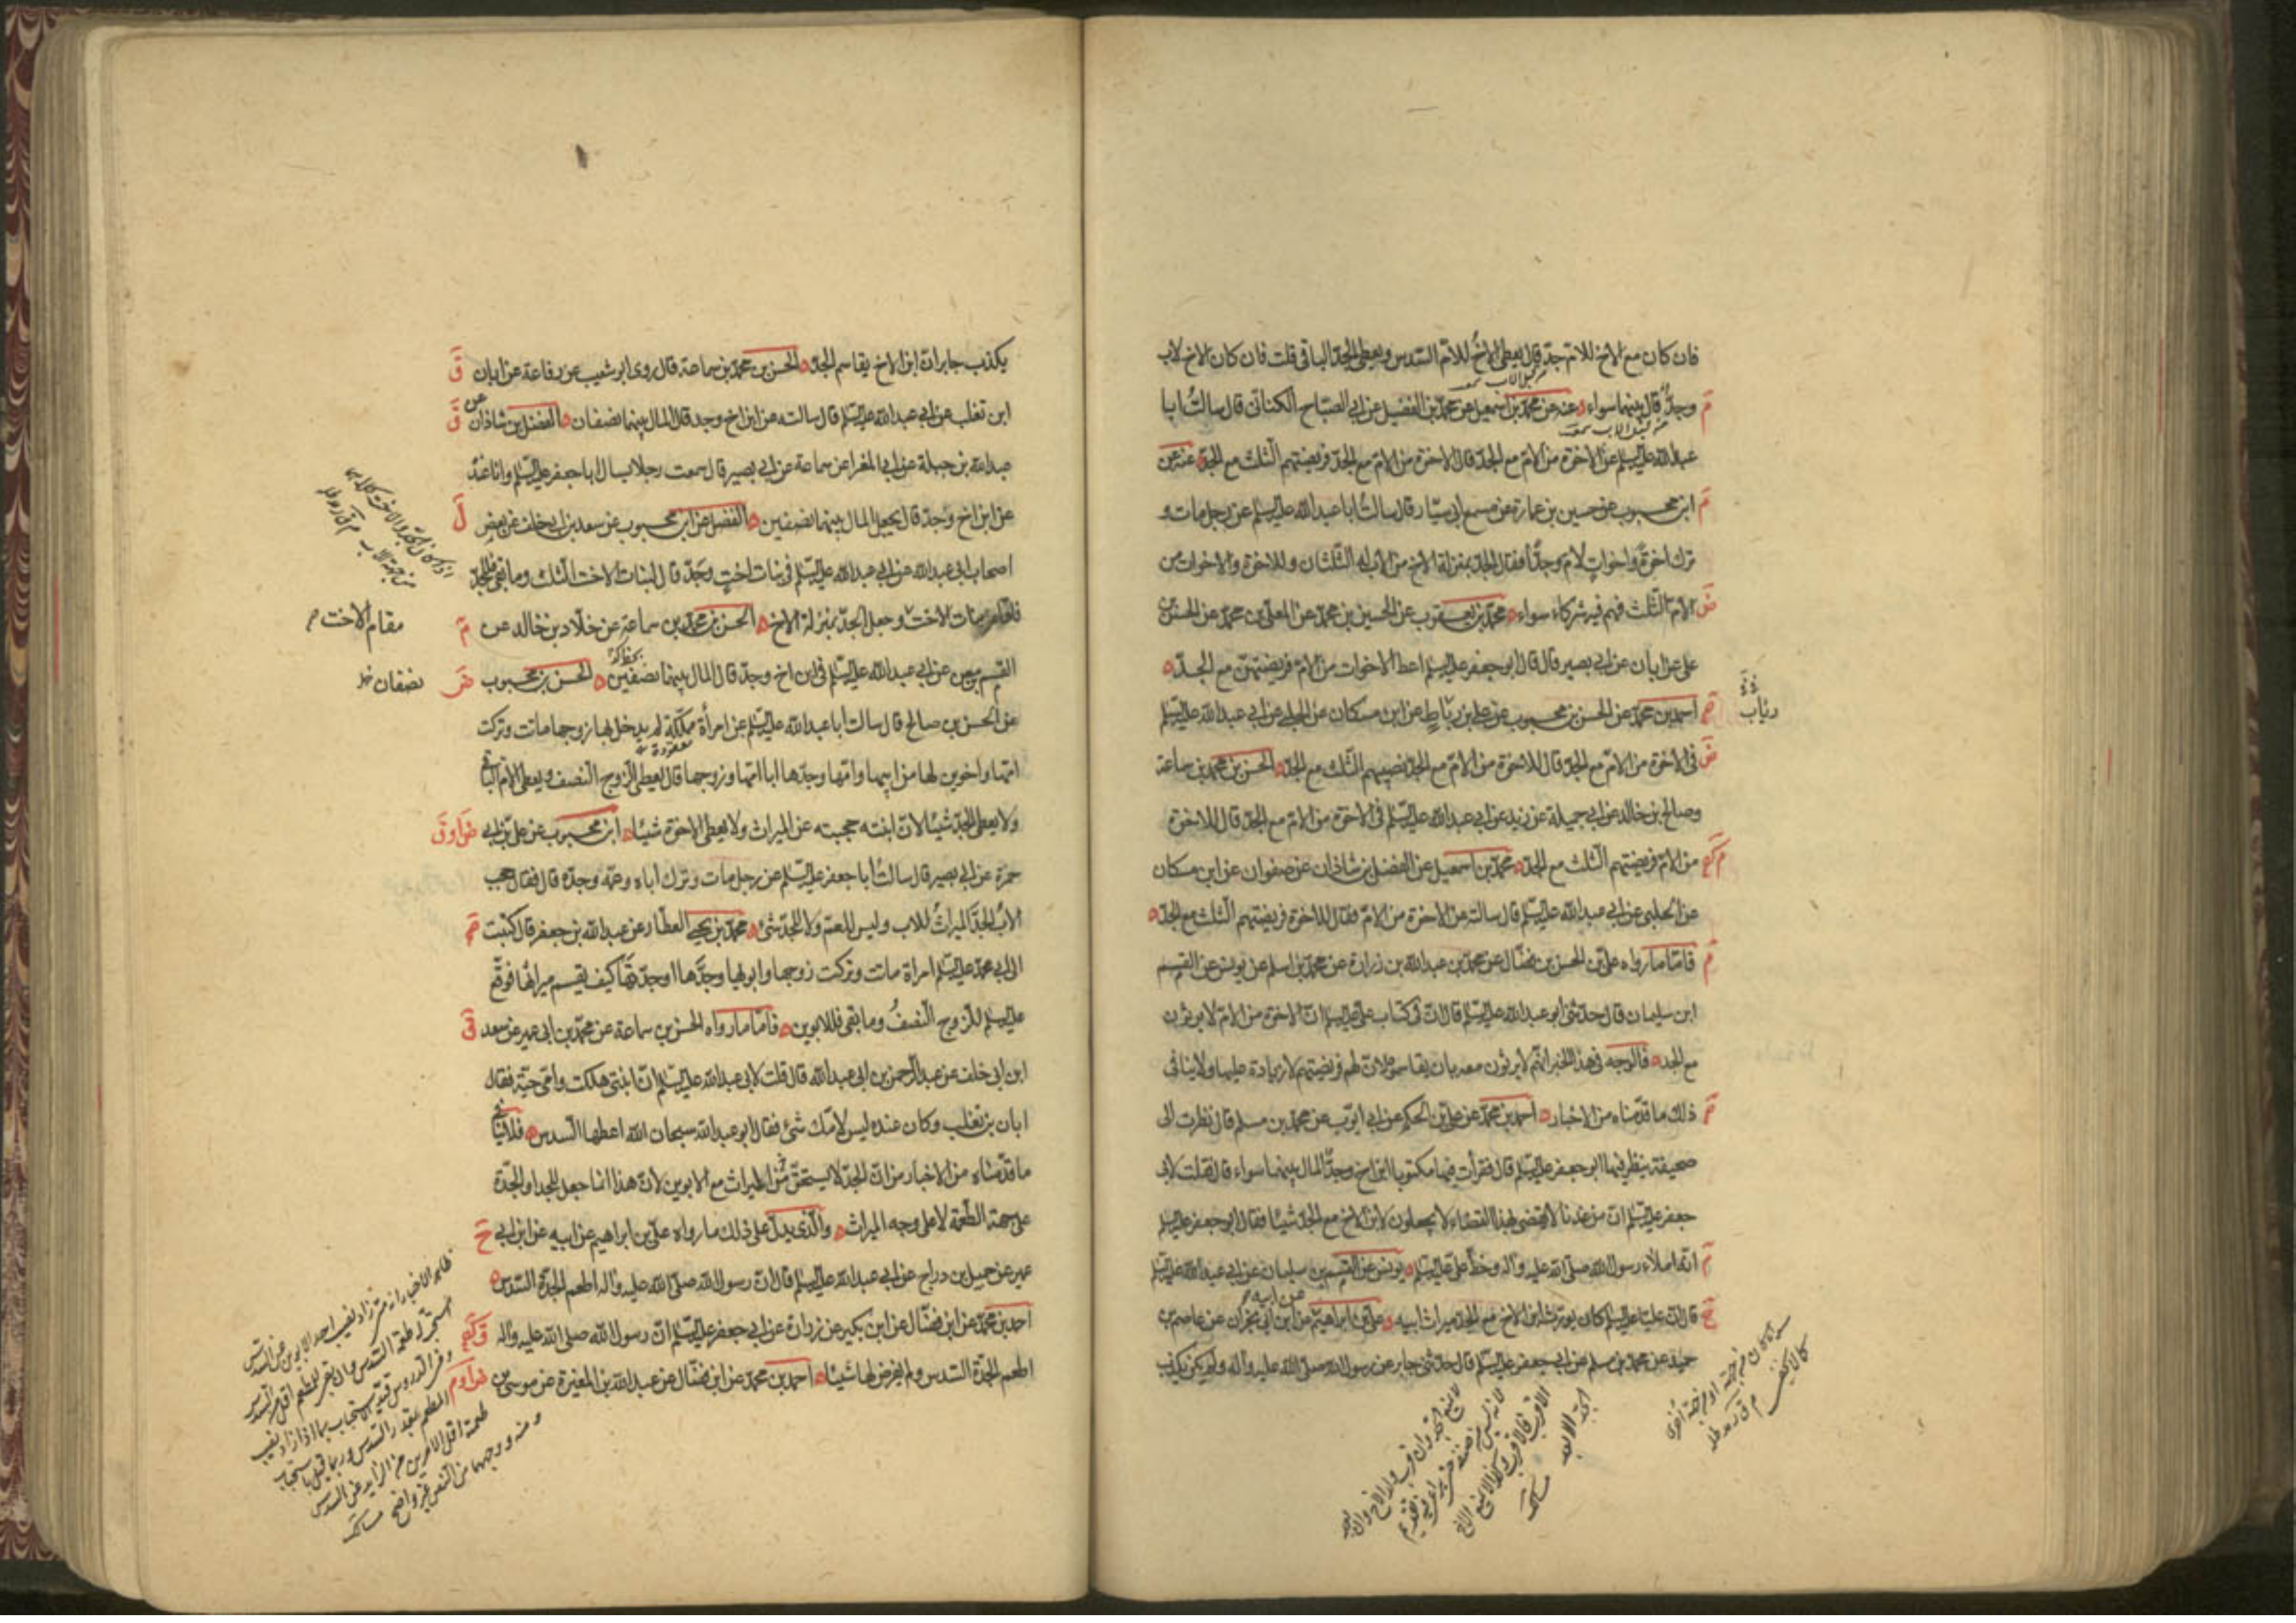 فان كان مع الاخ للام جد قال يعطى الاخ للام السدس ويعطى الجد الباقى قلت فان كان الاخ لاب
وجد قال بينهما سواء عنه عن محمد بن اسمعيل عن محمد بن الفضيل عن ابى الصباح الكنانى قال سالت ابا
عبد الله عليه السلم عن الاخوة من الام مع الجد قال الاخوة من الام مع الجد فريضتهم الثلث مع الجد عنه عن
ابن محبوب عن حسين بن عمارة عن مسمع ابى سيار قال سالت ابا عبد الله عليه السلم عن رجل مات و
ترك اخوة واخوات لام وجدا فقال الجد بمنزلة الاخ من الاب له الثلثان وللاخوة والاخوات من
الام الثلث فهم فيه شركاء سواء محمد بن يعقوب عن الحسين بن محمد عن المعلى بن محمد عن الحسن بن
على عن ابان عن ابى بصير قال قال ابو جعفر عليه السلم اعط الاخوات من الام فريضتهن مع الجد
احمد بن محمد عن الحسن بن محبوب عن على بن رباط عن ابن مسكان عن الحلبى عن ابى عبد الله عليه السلم
فى الاخوة من الام مع الجد قال للاخوة من الام مع الجد نصيبهم الثلث مع الجد الحسن بن محمد بن سماعة
وصالح بن خالد عن ابى جميلة عن زيد عن ابى عبد الله عليه السلم فى الاخوة من الام مع الجد قال للاخوة
من الام فريضتهم الثلث مع الجد محمد بن اسمعيل عن الفضل بن شاذان عن صفوان عن ابن مسكان
عن الحلبى عن ابى عبد الله عليه السلم قال سالته عن الاخوة من الام فقال للاخوة فريضتهم الثلث مع الجد
فاما ما رواه على بن الحسن بن فضال عن محمد بن عبد الله بن زرارة عن محمد بن اسلم عن يونس عن القسم
ابن سليمان قال حدثنى ابو عبد الله عليه السلم قال ان فى كتاب على عليه السلم ان الاخوة من الام لا يرثون
مع الجد فالوجه فى هذا الخبر انهم لا يرثون معه بان يقاسموه لان لهم فريضتهم لا زيادة عليها ولا ينافى
ذلك ما قدمناه من الاخبار احمد بن محمد عن على بن الحكم عن ابى ايوب عن محمد بن مسلم قال نظرت الى
صحيفة ينظر فيها ابو جعفر عليه السلم قال فقرات فيها مكتوبا ابن اخ وجد المال بينهما سواء قال فقلت لابى
جعفر عليه السلم ان من عندنا لا يقضى بهذا القضاء لا يجعلون لابن الاخ مع الجد شيئا فقال ابو جعفر عليه السلم
انه املاء رسول الله صلى الله عليه واله وخط على عليه السلم يونس عن القسم بن سليمان عن ابى عبد الله عليه السلم
قال ان عليا عليه السلم كان يورث ابن الاخ مع الجد ميراث ابيه على بن ابراهيم عن ابيه عن ابن ابى نجران عن عاصم بن
حميد عن محمد بن مسلم عن ابى جعفر عليه السلم قال حدثنى جابر عن رسول الله صلى الله عليه واله ولم يكن يكذب
يكذب جابر ان ابن الاخ يقاسم الجد الحسن بن محمد بن سماعة قال روى ابو شعيب عن رفاعة عن ابان
ابن تغلب عن ابى عبد الله عليه السلم قال سالته عن ابن اخ وجد قال المال بينهما نصفان الفضل بن شاذان عن
عبد الله بن جبلة عن ابى المغرا عن سماعة عن ابى بصير قال سمعت رجلا يسال ابا جعفر عليه السلم وانا عنده
عن ابن اخ وجد قال يجعل المال بينهما نصفين الفضل عن ابن محبوب عن سعد بن ابى خلف عن بعض
اصحاب ابى عبد الله عن ابى عبد الله عليه السلم فى بنات اخت وجد قال لبنات الاخت الثلث وما بقى فللجد
فاقام بنات الاخت وجعل الجد بمنزلة الاخ الحسن بن محمد بن سماعة عن خلاد بن خالد عن
مقام الاخت
القسم بن معن عن ابى عبد الله عليه السلم فى ابن اخ وجد قال المال بينهما نصفين الحسن بن محبوب
نصفان
عن الحسن بن صالح قال سالت ابا عبد الله عليه السلم عن امرأة مملكة لم يدخل بها زوجها ماتت وتركت
امها واخوين لها من ابيها وامها وجدها ابا امها وزوجها قال يعطى الزوج النصف ويعطى الام الباقى
ولا يعطى الجد شيئا لان ابنته حجبته عن الميراث ولا يعطى الاخوة شيئا ابن محبوب عن على بن ابى
حمزة عن ابى بصير قال سالت ابا جعفر عليه السلم عن رجل مات وترك اباه وعمه وجده قال فقال حجب
الاب الجد الميراث للاب وليس للعم ولا للجد شئ محمد بن يحيى العطار عن عبد الله بن جعفر قال كتبت
الى ابى محمد عليه السلم امراة ماتت وتركت زوجها وابويها وجدها او جدتها كيف يقسم ميراثها فوقع
عليه السلم للزوج النصف وما بقى فللابوين فاما ما رواه الحسن بن سماعة عن محمد بن ابى عمير عن سعد
ابن ابى خلف عن عبد الرحمن بن ابى عبد الله قال قلت لابى عبد الله عليه السلم ان ابنتى هلكت وامى حية فقال
ابان بن تغلب وكان عنده ليس لامك شئ فقال ابو عبد الله سبحان الله اعطها السدس فلا ينافى
ما قدمناه من الاخبار من ان الجد لا يستحق من الميراث مع الابوين لان هذا انما جعل للجد او الجدة
على جهة الطعمة لا على وجه الميراث والذى يدل على ذلك ما رواه على بن ابراهيم عن ابيه عن ابن ابى
عمير عن جميل بن دراج عن ابى عبد الله عليه السلم قال ان رسول الله صلى الله عليه واله اطعم الجدة السدس
احمد بن محمد عن ابن فضال عن ابن بكير عن زرارة عن ابى جعفر عليه السلم ان رسول الله صلى الله عليه واله
اطعم الجدة السدس ولم يفرض لها شيئا احمد بن محمد عن ابن فضال عن عبد الله بن المغيرة عن موسى بن